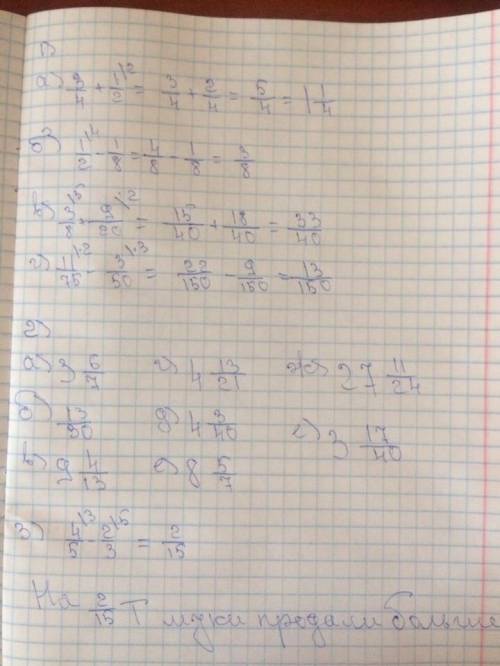 1)
а) 3/4 + 1/2 |2 = 3/4 + 2/4 = 5/4 = 1 1/4
б) 1/2 |4 - 1/8 = 4/8 - 1/8 = 3/8
в) 3/8 |5 + 9/20 |2 = 15/40 + 18/40 = 33/40
г) 11/75 |2 - 3/50 |3 = 22/150 - 9/150 = 13/150
2)
а) 3 6/7 г) 4 13/21 ж) 27 11/24
б) 13/30 д) 4 3/40 з) 3 17/40
в) 9 4/13 е) 8 5/7
3) 4/5 |3 - 2/3 |5 = 2/15
На 2/15 т муки продали больше